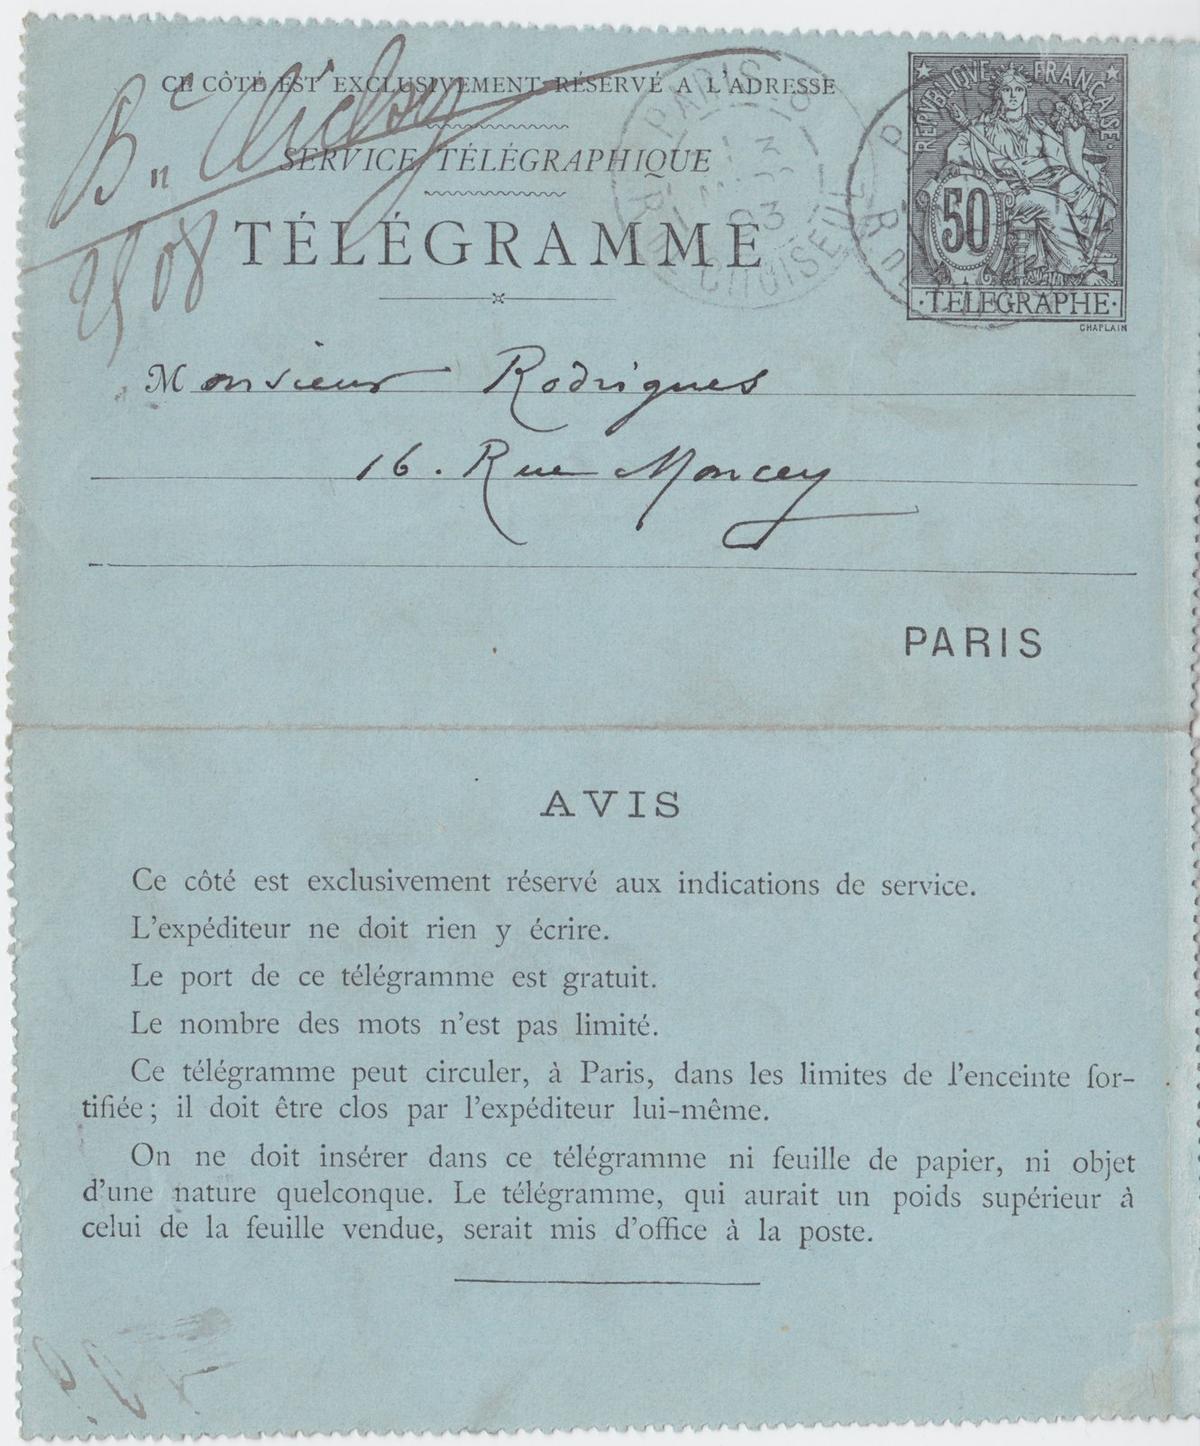 CE CÔTÉ EST EXCLUSIVEMENT RÉSERVÉ A L'ADRESSE
SERVICE TÉLÉGRAPHIQUE
TÉLÉGRAMME
Bd Clichy
PARIS
93
RUE CHOISEUL
REPVBLIQVE FRANÇAISE
50
·TÉLÉGRAPHE·
CHAPLAIN
Monsieur Rodrigues
16. Rue Moncey
PARIS
AVIS
Ce côté est exclusivement réservé aux indications de service.
L'expéditeur ne doit rien y écrire.
Le port de ce télégramme est gratuit.
Le nombre des mots n'est pas limité.
Ce télégramme peut circuler, à Paris, dans les limites de l'enceinte for-
tifiée; il doit être clos par l'expéditeur lui-même.
On ne doit insérer dans ce télégramme ni feuille de papier, ni objet
d'une nature quelconque. Le télégramme, qui aurait un poids supérieur à
celui de la feuille vendue, serait mis d'office à la poste.